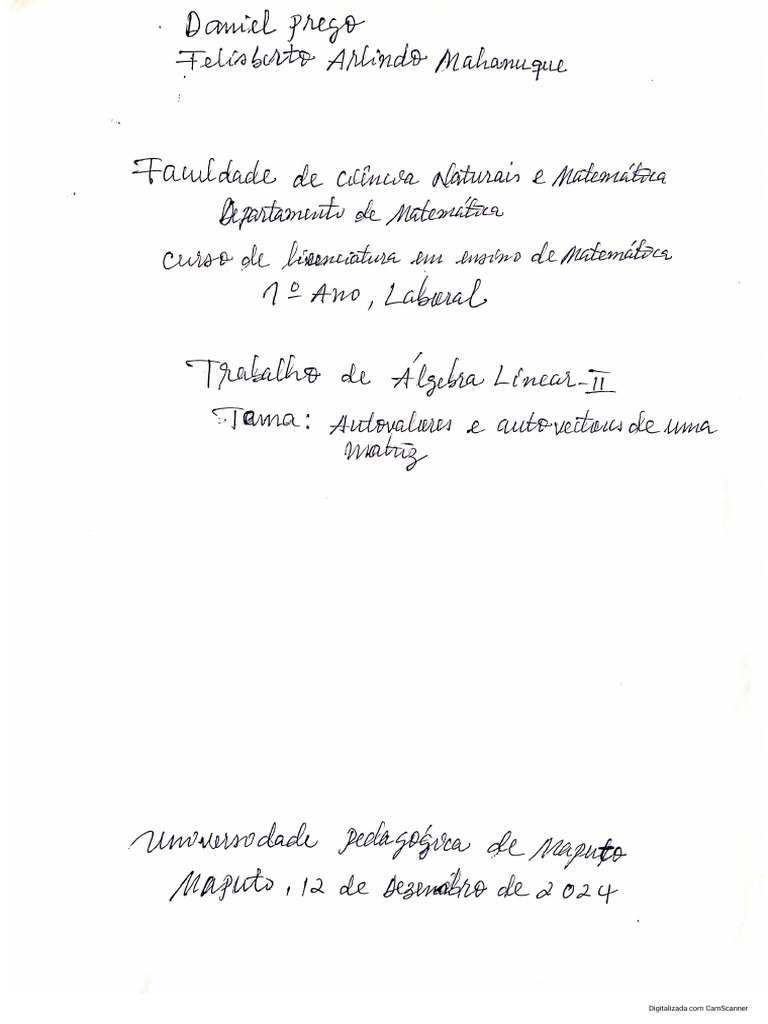 Daniel Prego
Felisberto Arlindo Mahanuque
Faculdade de Ciência Naturais e Matemática
Departamento de Matemática
Curso de licenciatura em ensino de Matemática
1º Ano, Laboral
Trabalho de Álgebra Linear-II
Tema: Autovalores e autovectores de uma
matriz
Universidade Pedagógica de Maputo
Maputo, 12 de Dezembro de 2024
Digitalizada com CamScanner